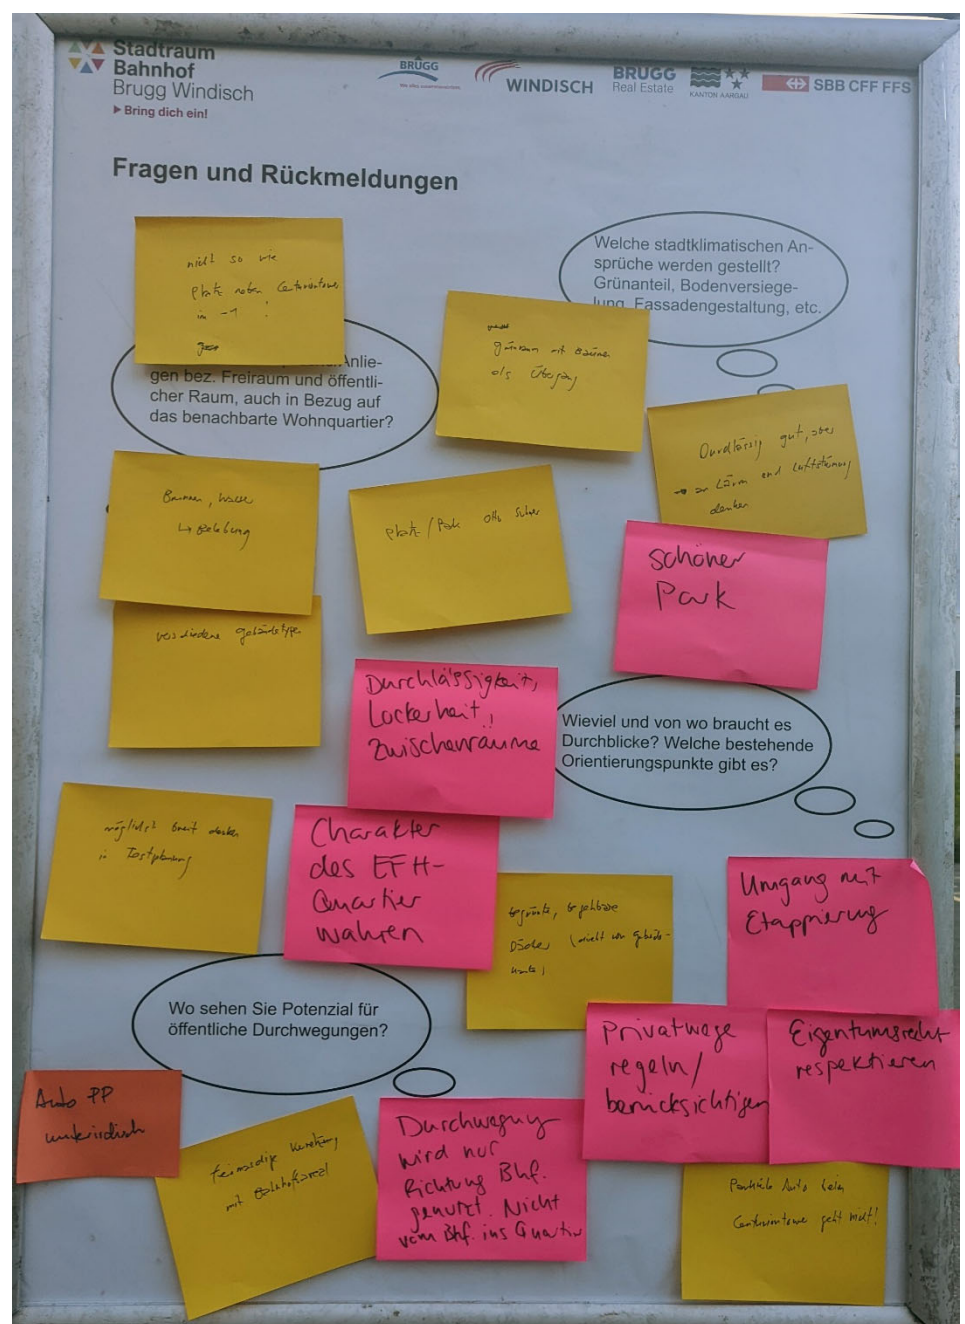 Stadtraum
Bahnhof
Brugg Windisch
Bring dich ein!
BRUGG
WINDISCH
BRUGG
Real Estate
KANTON AARGAU
SBB CFF FFS
Fragen und Rückmeldungen
nicht so wie
Platz neben
in -1 !
Anlie-
gen bez. Freiraum und öffentli-
cher Raum, auch in Bezug auf
das benachbarte Wohnquartier?
Welche stadtklimatischen An-
sprüche werden gestellt?
Grünanteil, Bodenversiege-
lung, Fassadengestaltung, etc.
Grünraum mit Bäumen
als Übergang
Durchlässig gut, aber
→ an Lärm und Luftströmung
denken
Brunnen, Wasser
↳ Belebung
Platz / Park
schöner
Park
verschiedene Gebäudetypen
Durchlässigkeit,
Lockerheit!!
Zwischenräume
Wieviel und von wo braucht es
Durchblicke? Welche bestehende
Orientierungspunkte gibt es?
möglichst breit denken
in Testplanung
Charakter
des EFH-
Quartier
wahren
begrünte, begehbare
Dächer
Umgang mit
Etappierung
Wo sehen Sie Potenzial für
öffentliche Durchwegungen?
Privatwege
regeln/
berücksichtigen
Eigentumsrecht
respektieren
Auto PP
unterirdisch
mit Bahnhofareal
Durchwegung
wird nur
Richtung Bhf.
genutzt. Nicht
vom Bhf. ins Quartier
Auto beim
geht nicht!